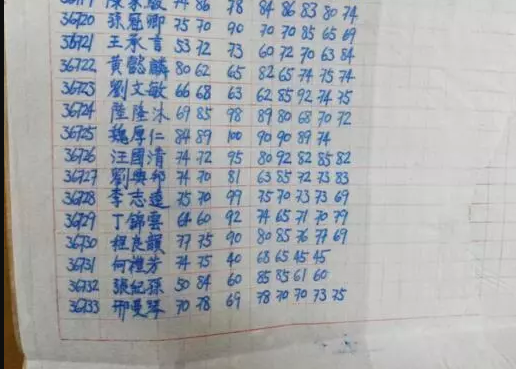 74 86 78 84 86 83 80 74
36720 張冠卿 75 70 90 70 70 85 65 69
36721 王承言 53 72 73 60 72 70 63 84
36722 黃懿麟 80 62 65 82 65 74 75 74
36723 劉文敏 66 68 63 62 85 92 74 75
36724 陸隆冰 69 85 98 89 80 68 70 72
36725 魏厚仁 84 89 100 90 90 89 74
36726 汪國清 74 72 95 80 92 82 85 82
36727 劉興邦 74 70 81 63 85 72 73 83
36728 李志遠 75 70 99 75 70 73 73 69
36729 丁錦雲 64 60 92 74 65 71 70 79
36730 程良韻 77 75 90 80 85 76 77 69
36731 何禮芳 74 75 40 68 65 45 45
36732 張紀孫 50 84 60 85 85 61 60
36733 邢曼琴 70 78 69 78 70 70 73 75